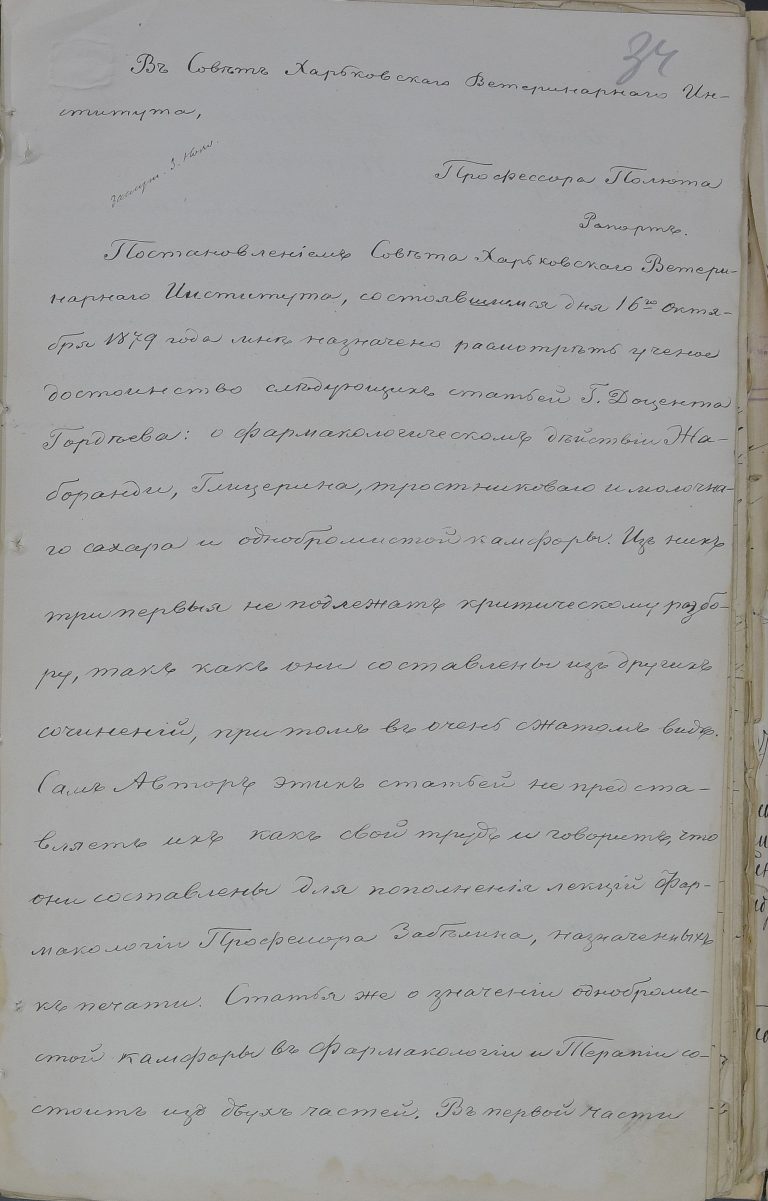 34
Въ Совѣтъ Харьковскаго Ветеринарнаго Ин-
ститута,
Профессора Полюта
Рапортъ.
Постановленіемъ Совѣта Харьковскаго Ветери-
нарнаго Института, состоявшимся дня 16го Октя-
бря 1879 года мнѣ назначено разсмотрѣть ученое
достоинство слѣдующихъ статьей Г. Доцента
Гордѣева: о фармакологическомъ дѣйствіи Жа-
боранди, Глицерина, тростниковаго и молочна-
го сахара и однобромистой камфоры. Изъ нихъ
три первыя не подлежатъ критическому разбо-
ру, такъ какъ они составлены изъ другихъ
сочиненій, притомъ въ очень сжатомъ видѣ.
Самъ Авторъ этихъ статьей не предста-
вляетъ ихъ какъ свой трудъ и говоритъ, что
они составлены для пополненія лекцій Фар-
макологіи Професcора Забѣлина, назначенныхъ
къ печати. Статья же о значеніи одноброми-
стой камфоры въ Фармакологіи и Терапіи со-
стоитъ изъ двухъ частей. Въ первой части